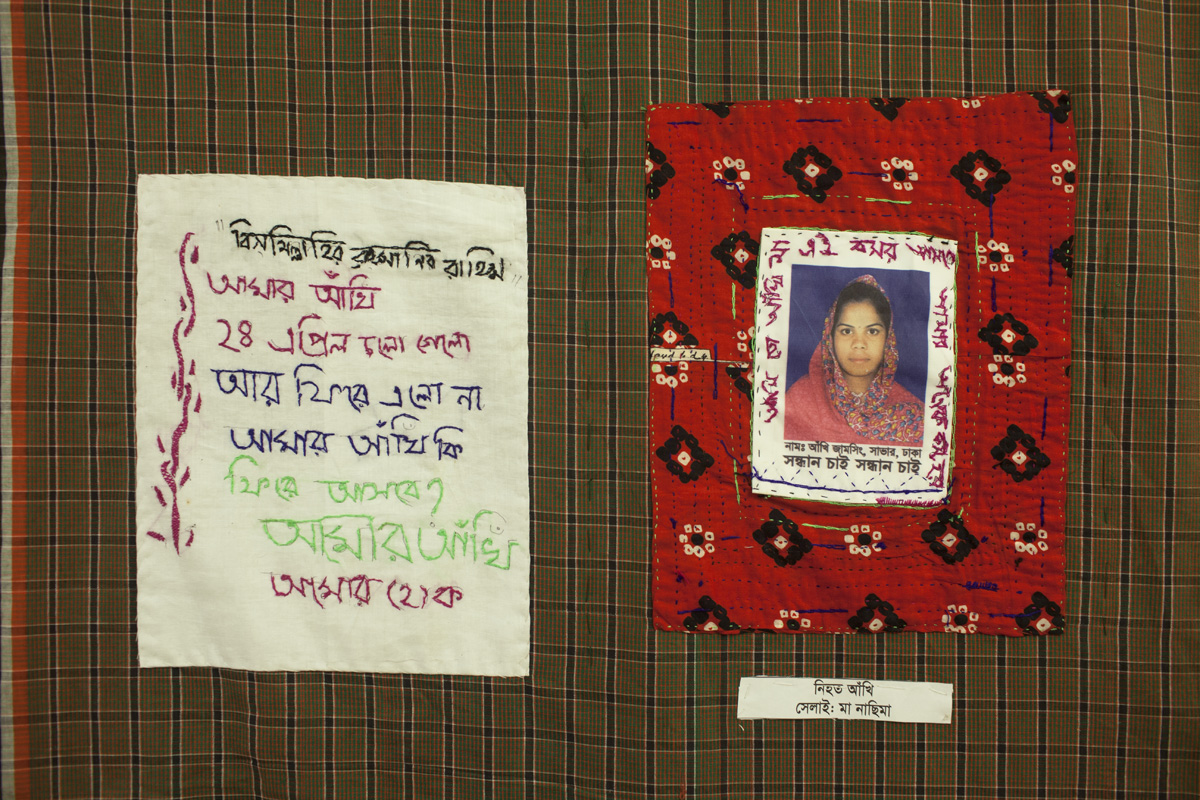 "বিসমিল্লাহির রহমানির রাহিম"
আমার আঁখি
২৪ এপ্রিল চলে গেলো
আর ফিরে এলো না
আমার আঁখি কি
ফিরে আসবে?
আমার আঁখি
আমার হোক
এই বসর আমাকে
আমার
নামঃ আঁখি জামসিং, সাভার, ঢাকা
সন্ধান চাই সন্ধান চাই
নিহত আঁখি
সেলাই: মা নাছিমা